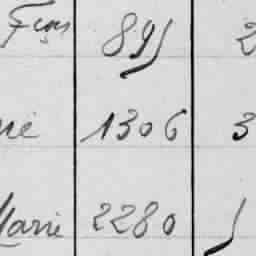 Fçois 891 2
rie 1306 3
Marie 2280 1